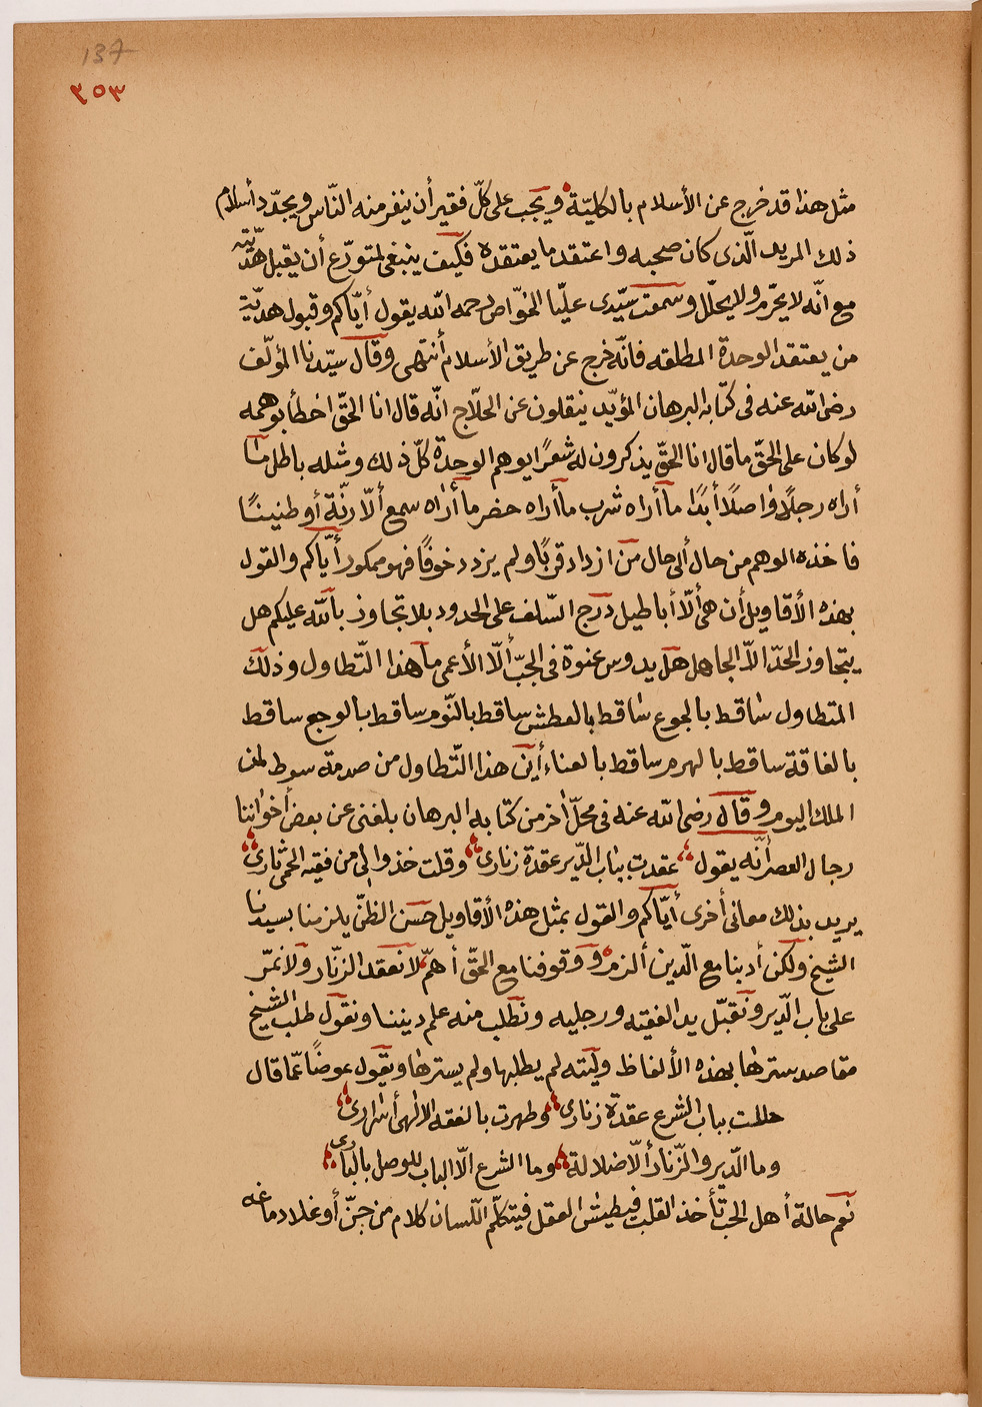 137
٢٥٣
مثل هذا قد خرج عن الأسلام بالكليّة ويجب على كلّ فقير أن ينفر منه النّاس ويجدّد أسلام
ذلك المريد الّذى كان صحبه واعتقد ما يعتقده فكيف ينبغى لمتورّع أن يقبل هديّته
مع انّه لا يحرّم ولا يحلّل وسمعت سيّدى عليّا الخوّاص رحمه الله يقول أيّاكم وقبول هديّة
من يعتقد الوحدة المطلقه فانّه خرج عن طريق الأسلام أنتهى وقال سيّدنا المؤلّف
رضى الله عنه فى كتابه البرهان المؤيّد ينقلون عن الحلّاج انّه قال انا الحقّ اخطأ بوهمه
لو كان على الحقّ ما قال انا الحقّ يذكرون له شعرًا يوهم الوحدة كلّ ذلك ومثله باطل مآ
أراه رجلًا واصلًا أبدًا مآ أراه شرب مآ أراه حضر مآ أراه سمع ألّا رنّة أو طنينًا
فاخذه الوهم من حال ألى حال من ازداد قربًا ولم يزدد خوفًا فهو ممكور أيّاكم والقول
بهذه الأقاويل أن هى ألّا أباطيل درج السّلف على الحدود بلا تجاوز بالله عليكم هل
يتجاوز الحدّ الّا الجاهل هل يدوس عنوة فى الجبّ ألّا الأعمى ما هذا التّطاول وذلك
المتطاول ساقط بالجوع ساقط بالعطش ساقط بالنّوم ساقط بالوجع ساقط
بالفاقة ساقط بالهرم ساقط بالعناء أين هذا التّطاول من صدمة سوط لمن
الملك اليوم وقال رضى الله عنه فى محلّ اخر من كتابه البرهان بلغنى عن بعض أخواننا
رجال العصر أنّه يقول عقدت بباب الدّير عقدة زنارى وقلت خذوا لى من فقيه الحمى ثارى
يريد بذلك معانى أخرى أيّاكم والقول بمثل هذه الأقاويل حسن الظنّ يلزمنا بسيدنا
الشيخ ولكن أدبنا مع الّدين ألزم ووقوفنا مع الحقّ أهمّ لا نعقد الزنّار ولا نمرّ
على باب الدّير ونقبّل يد الفقيه ورجليه ونطلب منه علم ديننا ونقول طلب الشيخ
مقاصد سترها بهذه الألفاظ وليته لم يطلبها ولم يسترها ويقول عوضًا عمّا قال
حللت بباب الشرع عقدة زنارى وطهرت بالفقه الالهى أسرارى
وما الدّير والزّنار ألّا ضلالة وما الشرع الّا الباب للوصل بالبارى
نعم حالة أهل الحبّ تأخذ القلب فيطيش العقل فيتكلّم اللّسان كلام من جنّ أو غلا دماغه